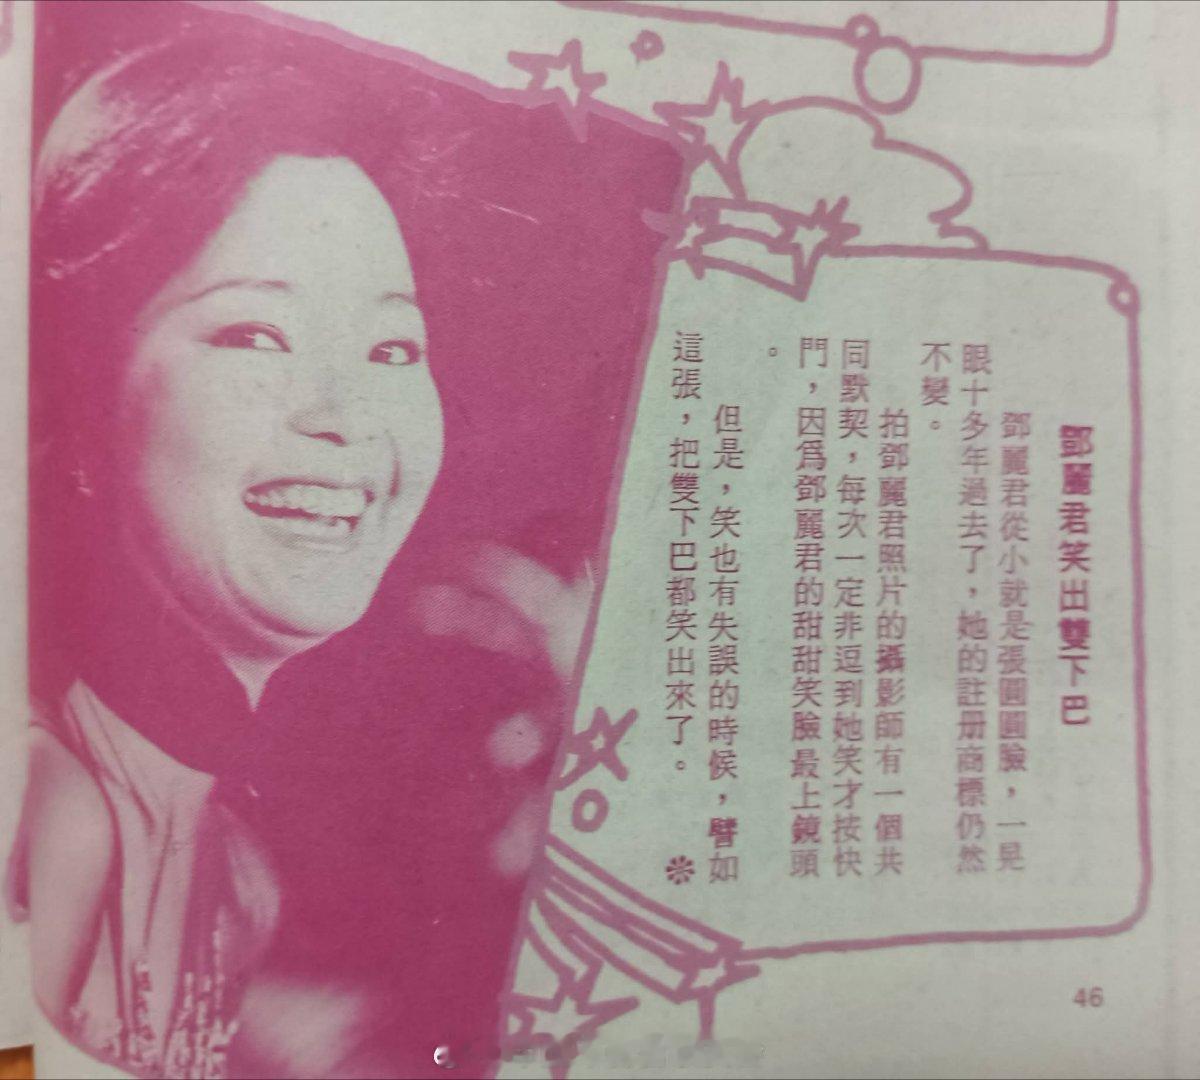 鄧麗君笑出雙下巴
鄧麗君從小就是張圓圓臉，一晃
眼十多年過去了，她的註册商標仍然
不變。
拍鄧麗君照片的攝影師有一個共
同默契，每次一定非逗到她笑才按快
門，因爲鄧麗君的甜甜笑臉最上鏡頭
。
但是，笑也有失誤的時候，譬如
這張，把雙下巴都笑出來了。
46